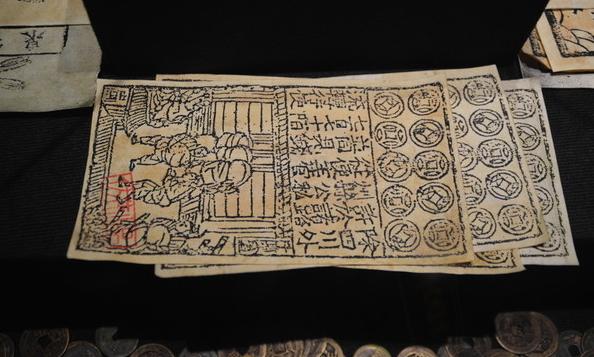 除四川外
許於諸路
州縣公私
從便主管
並同見錢
七百七十
陌流轉行使